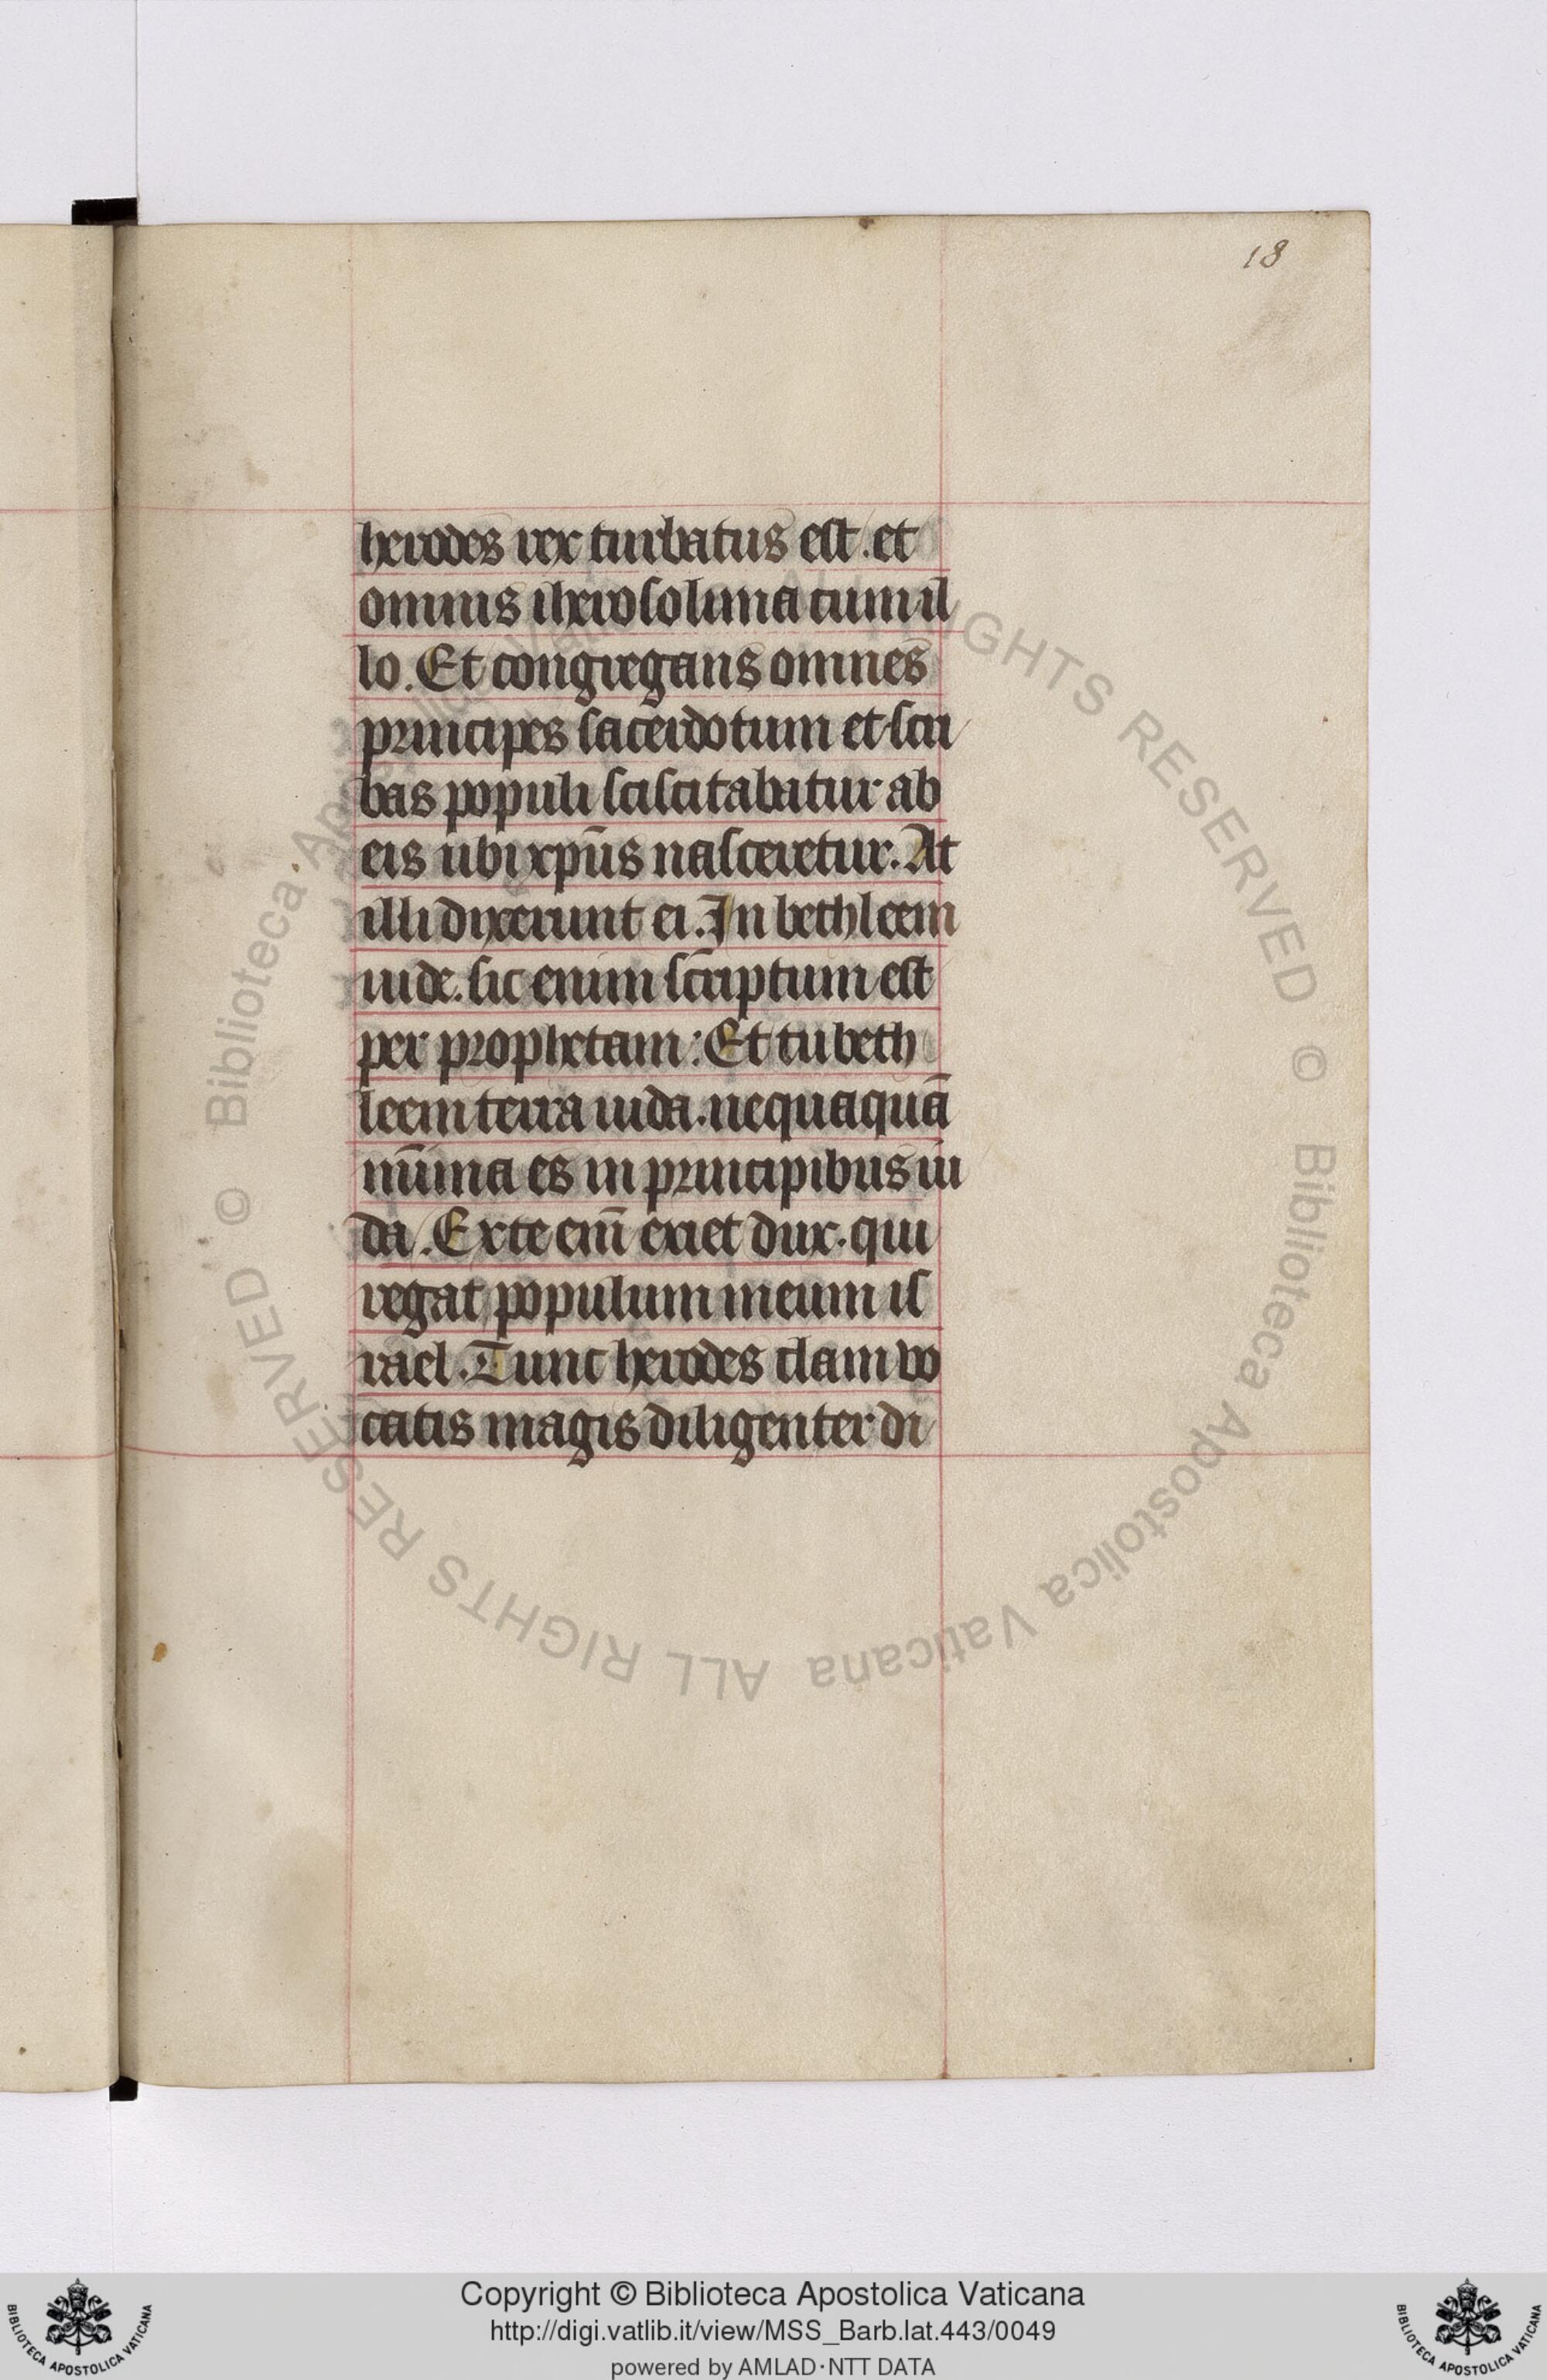 18
herodes rex turbatus est. et
omnis iherosolima cum il
lo. Et congregans omnes
principes sacerdotum et scri
bas populi sciscitabatur ab
eis ubi xp̄us nasceretur. At
illi dixerunt ei. In bethleem
iude. sic enim scriptum est
per prophetam: Et tu beth
leem terra iuda. nequaquā
mīima es in principibus iu
da. Ex te eni̅ exiet dux. qui
regat populum meum is
rael. Tunc herodes clam vo
catis magis diligenter di
Copyright © Biblioteca Apostolica Vaticana
http://digi.vatlib.it/view/MSS_Barb.lat.443/0049
powered by AMLAD·NTT DATA
BIBLIOTECA APOSTOLICA VATICANA
BIBLIOTECA APOSTOLICA VATICANA
© Biblioteca Apostolica Vaticana ALL RIGHTS RESERVED
© Biblioteca Apostolica Vaticana ALL RIGHTS RESERVED